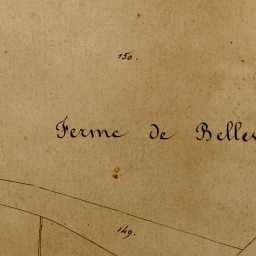 150.
Ferme de Belles
149.